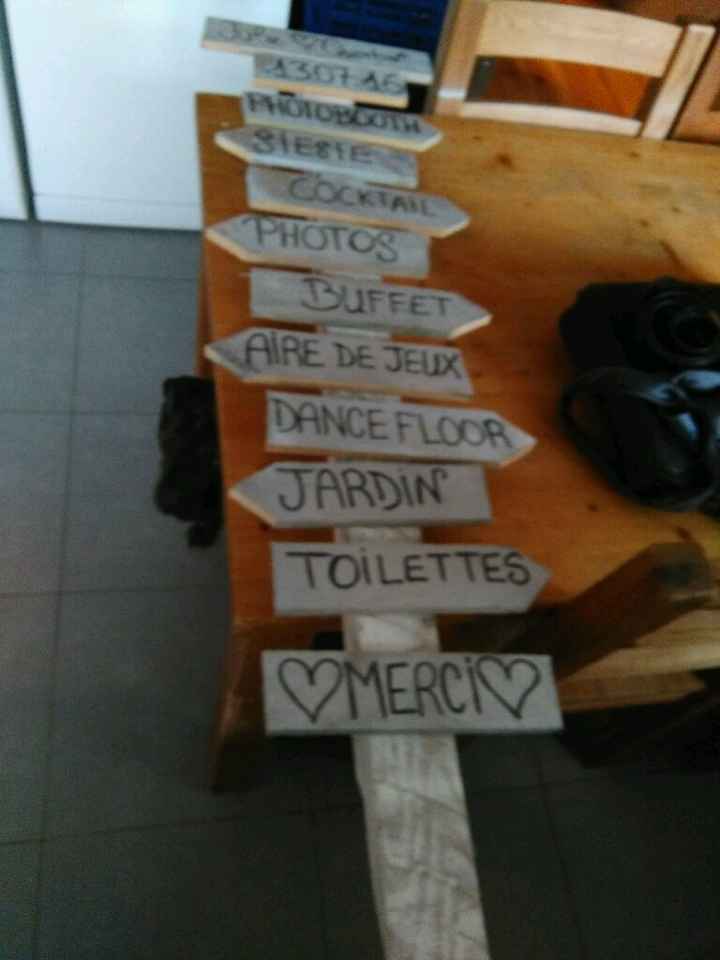 13·07·16
PHOTOBOOTH
SIESTE
COCKTAIL
PHOTOS
BUFFET
AIRE DE JEUX
DANCE FLOOR
JARDIN
TOILETTES
♡MERCi♡